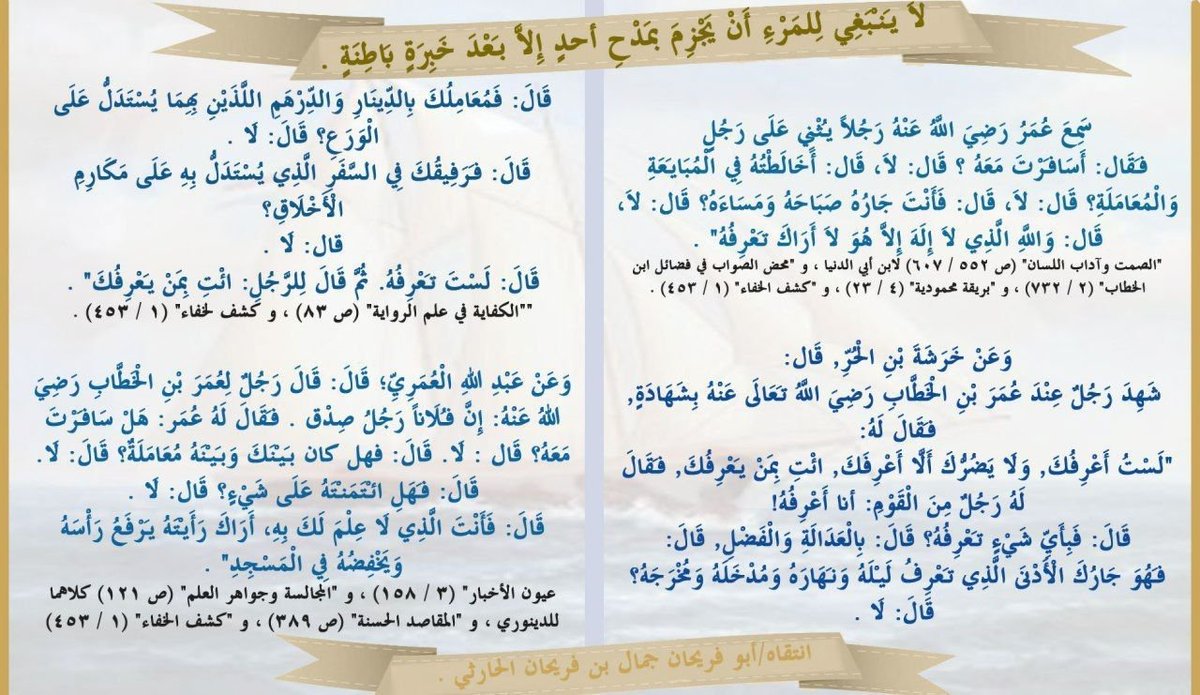 لاَ يَنْبَغِي لِلمَرْءِ أَنْ يَجْزِمَ بمَدْحِ أحدٍ إِلاَّ بَعْدَ خَبِرَةٍ بَاطِنَةٍ .
سَمِعَ عُمَرُ رَضِيَ اللَّهُ عَنْهُ رَجُلاً يُثْنِي عَلَى رَجُلٍ
فَقَال: أَسَافَرْتَ مَعَهُ ؟ قَال: لاَ، قَال: أَخَالَطْتُهُ فِي الْمُبَايَعَةِ
وَالْمُعَامَلَةِ؟ قَال: لاَ، قَال: فَأَنْتَ جَارُهُ صَبَاحَهُ وَمَسَاءَهُ؟ قَال: لاَ،
قَال: وَاللَّهِ الَّذِي لاَ إِلَهَ إِلاَّ هُوَ لاَ أَرَاكَ تَعْرِفُهُ" .
"الصمت وآداب اللسان" (ص ٥٥٢ / ٦٠٧) لابن أبي الدنيا ، و "محض الصواب في فضائل ابن
الخطاب" (٢ / ٧٣٢) ، و "بريقة محمودية" (٤ / ٢٣) ، و "كشف الخفاء" (١ / ٤٥٣) .
وَعَنْ خَرَشَةَ بْنِ الْحُرِّ, قَال:
شَهِدَ رَجُلٌ عِنْدَ عُمَرَ بْنِ الْخَطَّابِ رَضِيَ اللَّهُ تعَالَى عَنْهُ بِشَهَادَةٍ,
فَقَالَ لَهُ:
"لَسْتُ أَعْرِفُكَ, وَلَا يَضُرُّكَ أَلَّا أَعْرِفَكَ, ائْتِ بِمَنْ يَعْرِفُكَ, فَقَالَ
لَهُ رَجُلٌ مِنَ الْقَوْمِ: أنا أَعْرِفُهُ!
قَالَ: فَبِأَيِّ شَيْءٍ تَعْرِفُهُ؟ قَالَ: بِالْعَدَالَةِ وَالْفَضْلِ, قَالَ:
فَهُوَ جَارُكَ الْأَدْنَى الَّذِي تَعْرِفُ لَيْلَهُ وَنَهَارَهُ وَمُدْخَلَهُ وَمُخْرَجَهُ؟
قَالَ: لَا .
قَالَ: فَمُعَامِلُكَ بِالدِّينَارِ وَالدِّرْهَمِ اللَّذَيْنِ بِهِمَا يُسْتَدَلُّ عَلَى
الْوَرَعِ؟ قَالَ: لَا .
قَالَ: فَرَفِيقُكَ فِي السَّفَرِ الَّذِي يُسْتَدَلُّ بِهِ عَلَى مَكَارِمِ
الْأَخْلَاقِ؟
قال: لَا .
قَالَ: لَسْتَ تَعْرِفُهُ. ثُمَّ قَالَ لِلرَّجُلِ: ائْتِ بِمَنْ يَعْرِفُكَ" .
""الكفاية في علم الرواية" (ص ٨٣) ، و كشف لخفاء" (١ / ٤٥٣) .
وَعَنْ عَبْدِ اللهِ الْعُمَرِيِّ؛ قَالَ: قَالَ رَجُلٌ لِعُمَرَ بْنِ الْخَطَّابِ رَضِيَ
اللهُ عَنْهُ: إِنَّ فُلَاناً رَجُلُ صِدْق . فَقَالَ لَهُ عُمَر: هَلْ سَافَرْتَ
مَعَهُ؟ قَال : لَا. قَالَ: فهل كان بَيْنَكَ وَبَيْنَهُ مُعَامَلَةٌ؟ قَالَ: لَا.
قَالَ: فَهَلِ ائْتَمَنْتَهُ عَلَى شَيْءٍ؟ قَالَ: لَا .
قَالَ: فَأَنْتَ الَّذِي لَا عِلْمَ لَكَ بِهِ، أَرَاكَ رَأَيْتَهُ يَرْفَعُ رَأْسَهُ
وَيَخْفِضُهُ فِي الْمَسْجِدِ" .
عيون الأخبار" (٣ / ١٥٨) ، و "المجالسة وجواهر العلم" (ص ١٢١) كلاهما
للدينوري ، و "المقاصد الحسنة" (ص ٣٨٩) ، و "كشف الخفاء" (١ / ٤٥٣)
انتقاه/أبو فريحان جمال بن فريحان الحارثي .